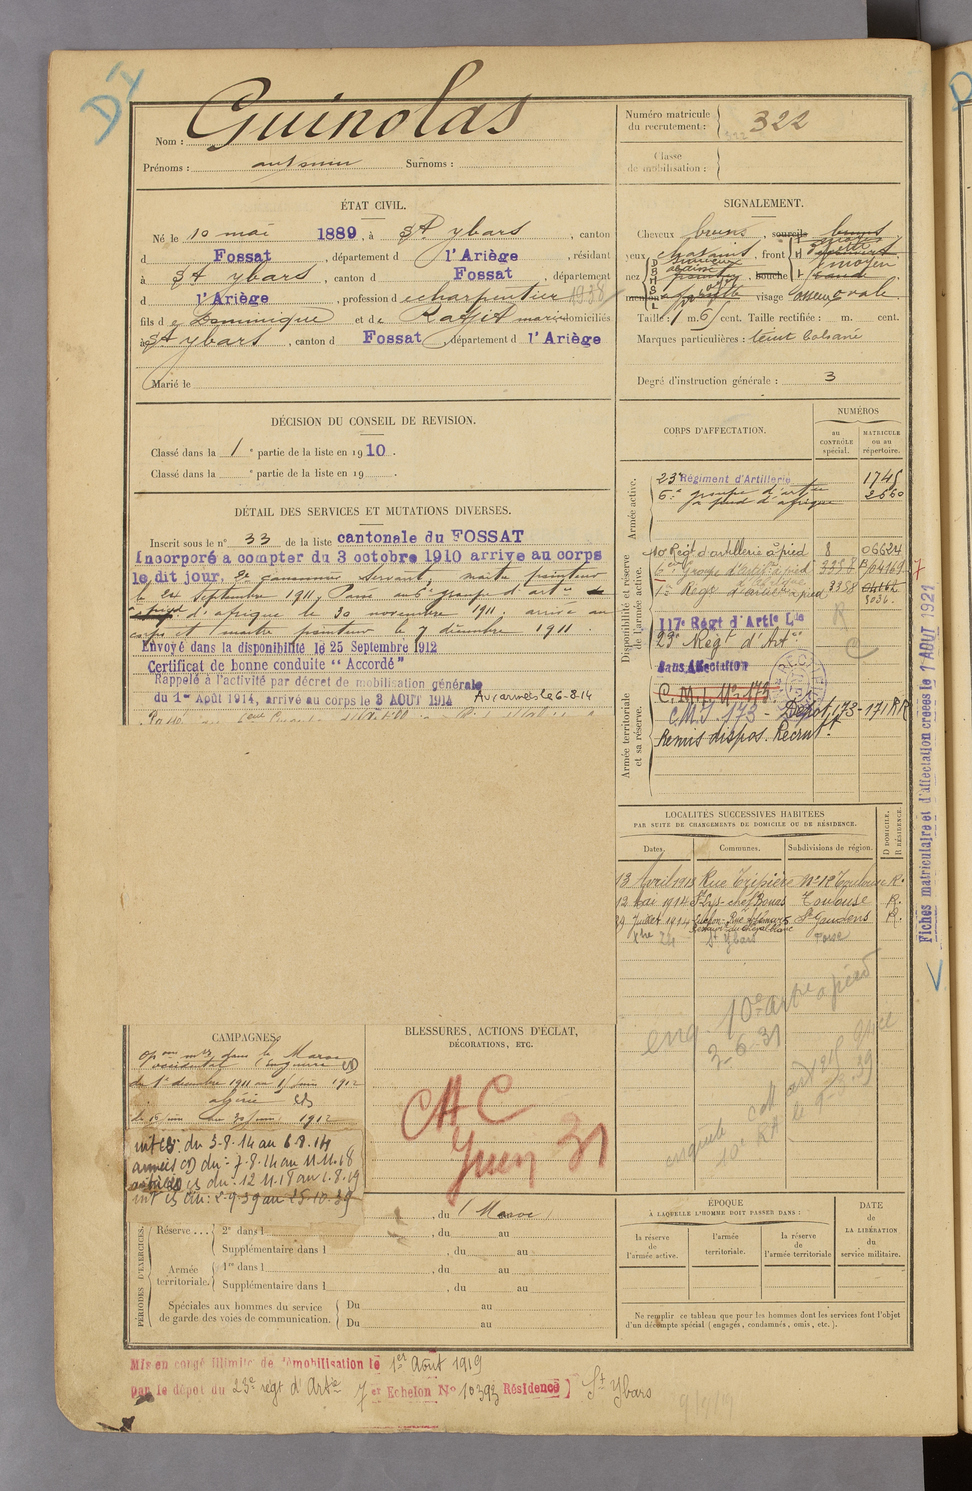 Guinolas
Nom :
Prénoms : Surnoms :
Numéro matricule
du recrutement : 322
Classe
de mobilisation :
ÉTAT CIVIL.
Né le 10 mai 1889, à St ybars, canton
d Fossat, département d l'Ariège, résidant
à St ybars, canton d Fossat, département
d l'Ariège, profession de charpentier 1938
fils de Dominique et de domiciliés
à St ybars, canton d Fossat, département d l'Ariège
Marié le
SIGNALEMENT.
Cheveux bruns, sourcils bruns
yeux chatains, front
nez, bouche moyen
menton visage ovale
Taille : 1 m. 6 cent. Taille rectifiée : m. cent.
Marques particulières : teint basané
Degré d'instruction générale : 3
DÉCISION DU CONSEIL DE REVISION.
Classé dans la 1e partie de la liste en 1910.
Classé dans la e partie de la liste en 19 .
DÉTAIL DES SERVICES ET MUTATIONS DIVERSES.
Inscrit sous le n° 33 de la liste cantonale du FOSSAT
Incorporé à compter du 3 octobre 1910 arrivé au corps
le dit jour, 2e canonnier servant, maître pointeur
le 24 septembre 1911, Passé au 6e groupe d'artie
à pied d'afrique le 30 novembre 1911. arrivé au
corps et maitre pointeur le 7 décembre 1911.
Envoyé dans la disponibilité le 25 Septembre 1912
Certificat de bonne conduite "Accordé"
Rappelé à l'activité par décret de mobilisation générale
du 1er Août 1914, arrivé au corps le 3 AOUT 1914 Aux armées le 6-8-14
CORPS D'AFFECTATION.
NUMÉROS
au
CONTRÔLE
spécial.
MATRICULE
ou au
répertoire.
Armée active.
23e Régiment d'Artillerie 1745
6e groupe d'artie 2560
à pied d'afrique
Disponibilité et réserve
de l'armée active.
10 Régt d'artillerie à pied 8 06624
6e Groupe d'artie à pied 3357
1er Régt d'artie à pied 3358
5036.
117e Régt d'Artie Lde
23e Régt d'Artie
Sans Affectation
Armée territoriale
et sa réserve.
C.M.I. N° 173
C.M.I. 173 - Dépôt 173-171 RR
Remis dispos. Recrutt.
R
C
Fiches matriculaire et d'affectation créées le 1 AOUT 1921
LOCALITÉS SUCCESSIVES HABITÉES
PAR SUITE DE CHANGEMENTS DE DOMICILE OU DE RÉSIDENCE.
Dates. Communes. Subdivisions de région. D DOMICILE. R RÉSIDENCE.
13 Avril 1913 Rue Tripière N° 18 Toulouse R.
12 Mai 1914 St Lys Toulouse R.
29 Juillet 1914 Luchon St Gaudens R.
St Ybars
10e artie à pied
3-6-31
CAMPAGNES.
Maroc
occidental
du 1er décembre 1911 au 1 juin 1912
algérie
1912
int. CS. du 3-8-14 au 6-8-14
armées CD du 7-8-14 au 11-11-18
CS du 12-11-18 au 1-8-19
int CS du : 2-9-39 au 25-10-39
BLESSURES, ACTIONS D'ÉCLAT,
DÉCORATIONS, ETC.
CAC
Juin 31
PÉRIODES D'EXERCICES.
, du (Maroc)
Réserve... 2e dans l , du au
Supplémentaire dans l , du au
Armée
territoriale. 1re dans l , du au
Supplémentaire dans l , du au
Spéciales aux hommes du service
de garde des voies de communication. Du au
Du au
ÉPOQUE
À LAQUELLE L'HOMME DOIT PASSER DANS :
la réserve
de
l'armée active.
l'armée
territoriale.
la réserve
de
l'armée territoriale
DATE
de
LA LIBÉRATION
du
service militaire.
Ne remplir ce tableau que pour les hommes dont les services font l'objet
d'un décompte spécial (engagés, condamnés, omis, etc.).
Mis en congé illimité de démobilisation le 1er Août 1919
par le dépôt du 23e régt d'Artie 7er Echelon N° 10393 Résidence) St Ybars